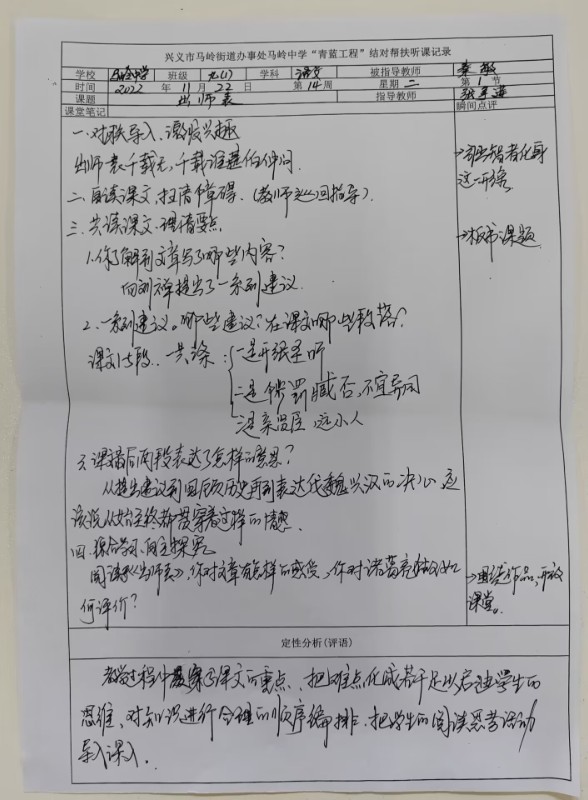 兴义市马岭街道办事处马岭中学“青蓝工程”结对帮扶听课记录
学校 马岭中学 班级 九(1) 学科 语文 被指导教师
时间 2022 年 11 月 22 日 第 14 周 星期 二 第 1 节
课题 出师表 指导教师
课堂笔记 瞬间点评
一.对联导入、激发兴趣
出师一表千载无,千载谁堪伯仲间.
二.自读课文,扫清障碍.(教师巡回指导).
三.共读课文.理清要点
1.你了解到文章写了哪些内容?
向刘禅提出了一系列建议.
2.一系列建议。哪些建议?在课文哪些段落?
课文1-5段. 共三条:一是开张圣听
二是陟罚臧否,不宜异同
三是亲贤臣,远小人
3.课文最后两段表达了怎样的意思?
从提出建议到回顾历史再到表达伐魏兴汉的决心,应
该说从始至终都贯穿着这样的情感.
四.综合学习.自主探究
阅读《出师表》,你对文章有怎样的感受,你对诸葛亮如
何评价?
智者化身
这一开端
→板书课题
→围绕作品,开放
课堂。
定性分析(评语)
教学过程中贯穿了课文的重点、把难点化成若干足以启迪学生的
思维、对知识进行合理的顺序编排.把学生的阅读思考活动
导入课入.